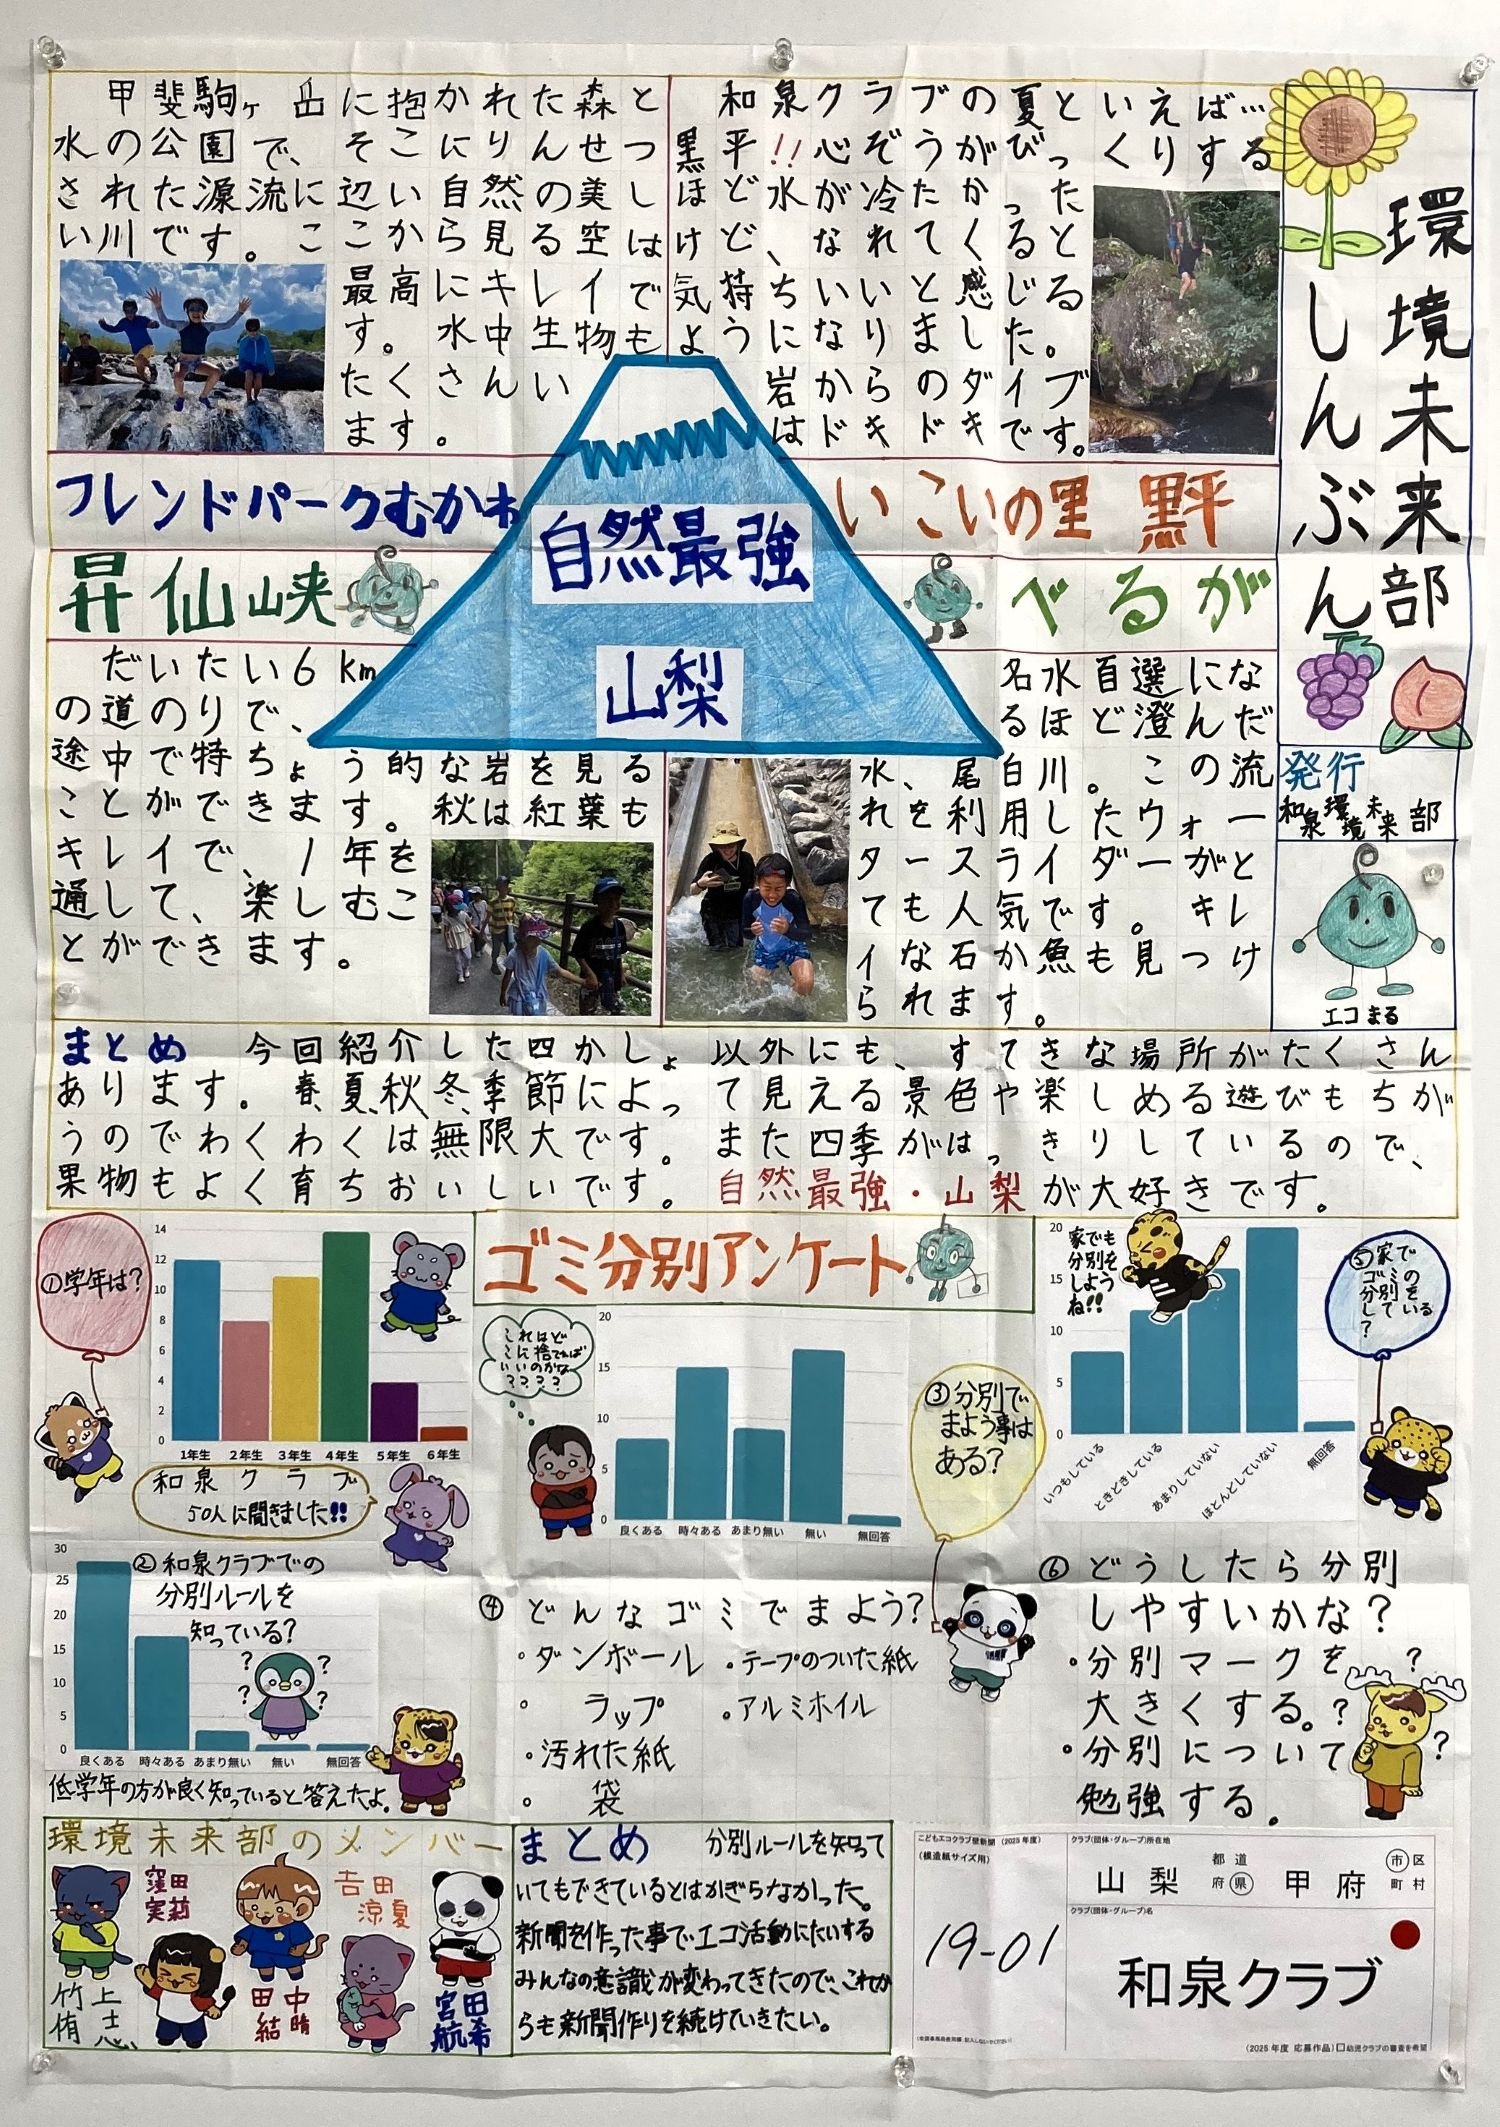 環境未来部
しんぶん
発行
和泉環境未来部
エコまる
和泉クラブの夏といえば…
黒平!!心ぞうがびっくりする
ほど水が冷たかった
けど、なれてくると
気持ちいいと感じる
ようになりました。
岩からのダイブ
はドキドキです。
いこいの里 黒平
甲斐駒ヶ岳に抱かれた森と
水の公園で、そこにりんせつ
された源流に辺い自然の美し
い川です。ここから見る空は
最高にキレイで
す。水中生物も
たくさんい
ます。
フレンドパークむかわ
自然最強
山梨
昇仙峡
だいたい6km
の道のりで、
途中で特ちょう的な岩を見る
ことができます。秋は紅葉も
キレイで、1年を
通して、楽しむこ
とができます。
べるが
名水百選にな
るほど澄んだ
水、尾白川。この流
れを利用したウォー
タースライダーがと
ても人気です。キレ
イな石か魚も見つけ
られます。
まとめ 今回紹介した四かしょ以外にも、すてきな場所がたくさん
あります。春、夏、秋、冬、季節によって見える景色や楽しめる遊びもちが
うのでわくわくは無限大です。また四季がはっきりしているので、
果物もよく育ちおいしいです。自然最強・山梨が大好きです。
ゴミ分別アンケート
①学年は?
14
12
10
8
6
4
2
0
1年生 2年生 3年生 4年生 5年生 6年生
和泉クラブ
50人に聞きました!!
②和泉クラブでの
分別ルールを
知っている?
30
25
20
15
10
5
0
? ?
? ?
良くある 時々ある あまり無い 無い 無回答
低学年の方が良く知っていると答えたよ。
これはど
こに捨てれば
いいのかな
????
③分別で
まよう事は
ある?
20
15
10
5
0
良くある 時々ある あまり無い 無い 無回答
④どんなゴミでまよう?
・ダンボール ・テープのついた紙
・ラップ ・アルミホイル
・汚れた紙
・袋
家でも
分別を
しよう
ね!!
⑤家で
ゴミの
分別を
している
?
20
15
10
5
0
いつもしている ときどきしている あまりしていない ほとんどしていない 無回答
⑥どうしたら分別
しやすいかな?
・分別マークを
大きくする。
・分別について
勉強する。
?
?
?
環境未来部のメンバー
窪田
実莉
吉田
涼夏
竹上
侑士
田中
結晴
宮田
航希
まとめ 分別ルールを知って
いてもできているとはかぎらなかった。
新聞を作った事でエコ活動にたいする
みんなの意識が変わってきたので、これか
らも新聞作りを続けていきたい。
こどもエコクラブ壁新聞 (2025年度)
(模造紙サイズ用)
19-01
クラブ(団体・グループ)所在地
山梨 都道府県 甲府 市区町村
クラブ(団体・グループ)名
和泉クラブ
(2025年度 応募作品)□幼児クラブの審査を希望